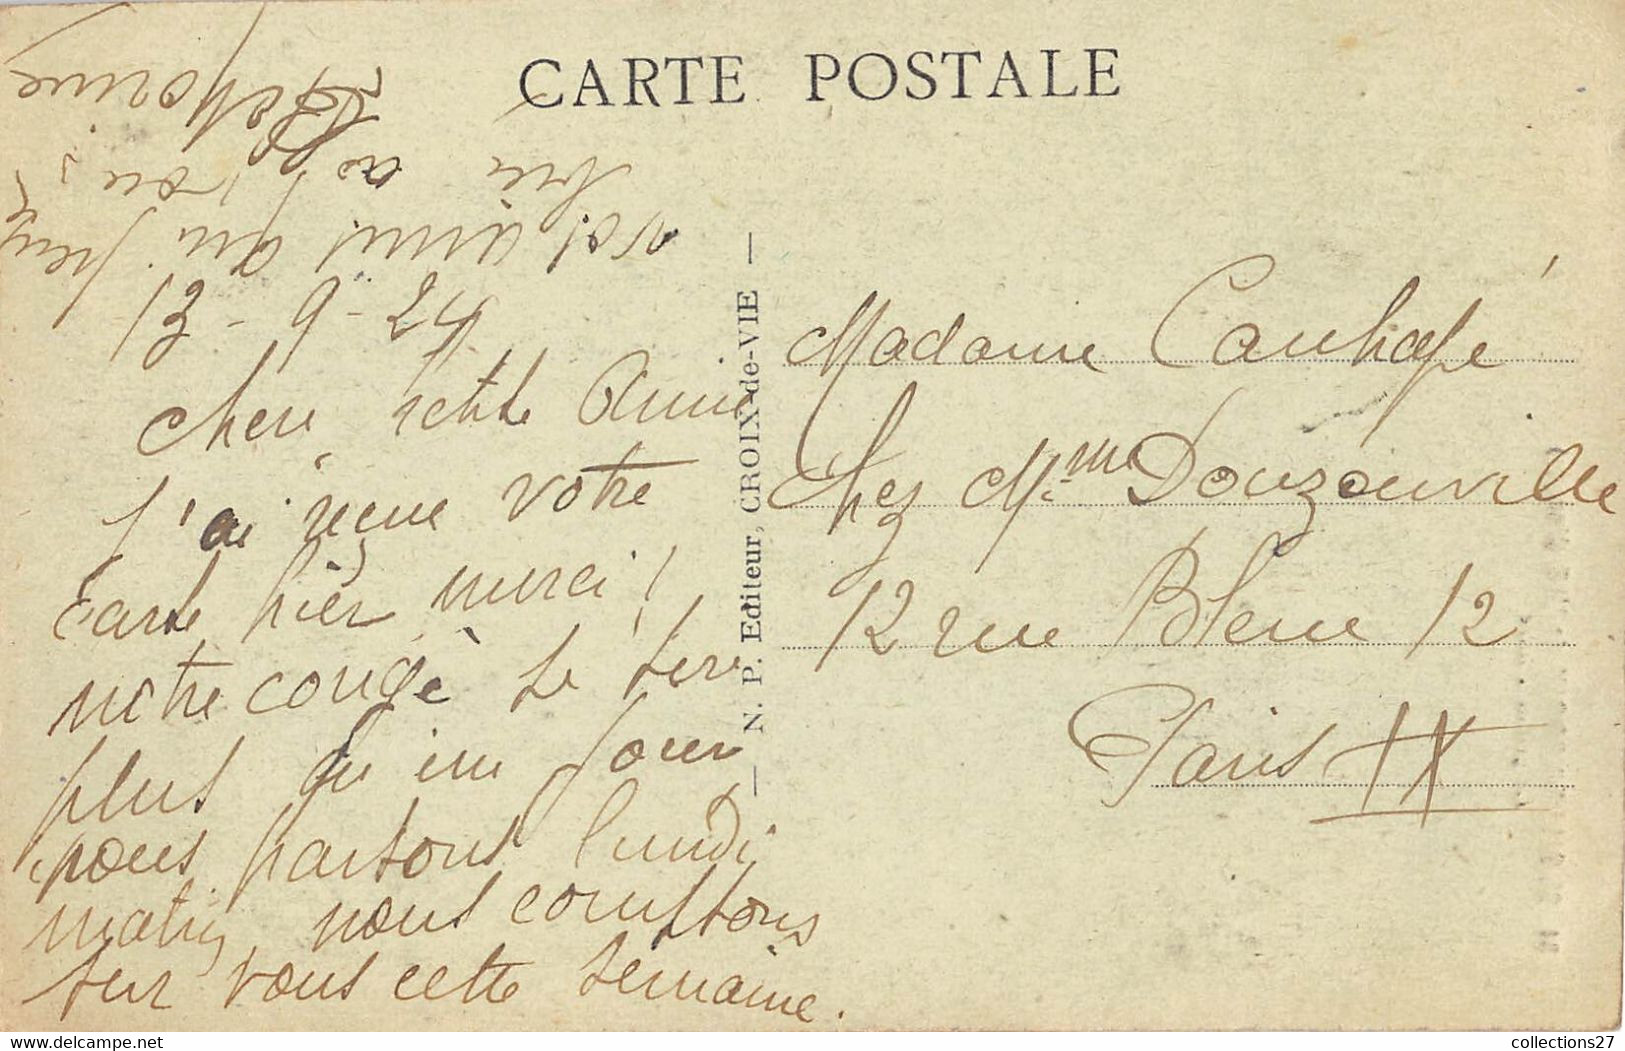 CARTE POSTALE
13-9-24
Chere petite Amie
J'ai reçue votre
Carte hier, merci!
notre congé se tire
plus qu'un jour
nous partons lundi
matin, nous comptons
sur vous cette semaine.
vos amis qui
a vous,
N. P. Editeur, CROIX-de-VIE
Madame
Chez Mme Douzouville
12 rue Bleue 12
Paris IX
collections27